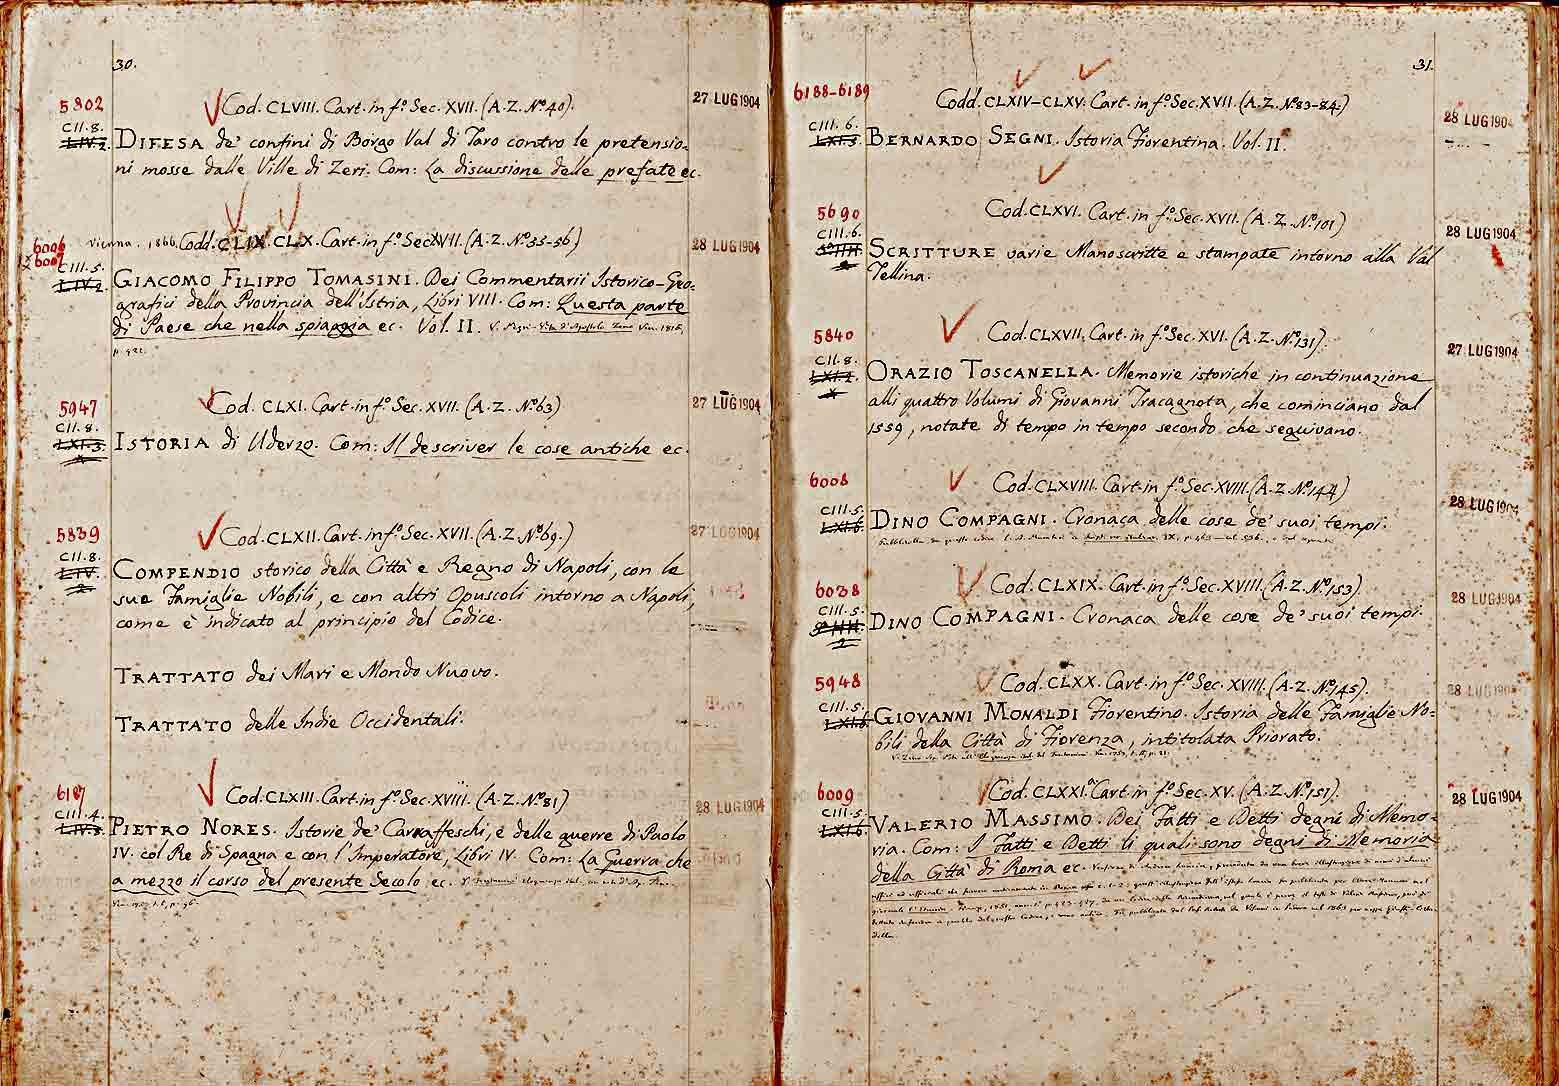 30.
5802
Cod. CLVIII. Cart. in f.º Sec. XVII. (A. Z. Nº. 40).
27 LUG 1904
CII. 8.
LIV. 2.
DIFESA de' confini di Borgo Val di Taro contro le pretensio-
ni mosse dalle Ville di Zeri. Com: La discussione delle prefate ec.
6006
6007
Vienna. 1866. Codd. CLIX. CLX. Cart. in f.º Sec. XVII. (A. Z. Nº. 55-56)
28 LUG 1904
CIII. 5.
LIV. 2.
GIACOMO FILIPPO TOMASINI. Dei Commentarii Istorico-Geo-
grafici della Provincia dell'Istria, Libri VIII. Com: Questa parte
di Paese che nella spiaggia ec. Vol. II.
5947
Cod. CLXI. Cart. in f.º Sec. XVII. (A. Z. Nº. 63)
27 LUG 1904
CII. 8.
LXI. 3.
ISTORIA di Uderzo. Com: Il descriver le cose antiche ec.
5839
Cod. CLXII. Cart. in f.º Sec. XVII. (A. Z. Nº. 69.)
27 LUG 1904
CII. 8.
LIV.
2
COMPENDIO storico della Città e Regno di Napoli, con le
sue Famiglie Nobili, e con altri Opuscoli intorno a Napoli,
come è indicato al principio del Codice.
TRATTATO dei Mari e Mondo Nuovo.
TRATTATO delle Indie Occidentali.
6187
Cod. CLXIII. Cart. in f.º Sec. XVIII. (A. Z. Nº. 81)
28 LUG 1904
CIII. 4.
LIV. 3.
PIETRO NORES. Istorie de' Carraffeschi, e delle guerre di Paolo
IV. col Re di Spagna e con l'Imperatore, Libri IV. Com: La Guerra che
a mezzo il corso del presente Secolo ec.
31.
6188-6189
Codd. CLXIV-CLXV. Cart. in f.º Sec. XVII. (A. Z. Nº. 83-84.)
28 LUG 1904
CIII. 6.
LXI. 5.
BERNARDO SEGNI. Istoria Fiorentina. Vol. II.
5690
Cod. CLXVI. Cart. in f.º Sec. XVII. (A. Z. Nº. 101)
28 LUG 1904
CIII. 6.
SCRITTURE varie Manoscritte e stampate intorno alla Val
Tellina.
5840
Cod. CLXVII. Cart. in f.º Sec. XVI. (A. Z. Nº. 131).
27 LUG 1904
CII. 8.
LXI. 2.
ORAZIO TOSCANELLA. Memorie istoriche in continuazione
alli quattro Volumi di Giovanni Tracagnota, che cominciano dal
1559, notate di tempo in tempo secondo che seguivano.
6008
Cod. CLXVIII. Cart. in f.º Sec. XVIII. (A. Z. Nº. 144)
28 LUG 1904
CIII. 5.
LXI. 6.
DINO COMPAGNI. Cronaca delle cose de' suoi tempi.
6038
Cod. CLXIX. Cart. in f.º Sec. XVIII. (A. Z. Nº. 153).
28 LUG 1904
CIII. 5.
2
DINO COMPAGNI. Cronaca delle cose de' suoi tempi.
5948
Cod. CLXX. Cart. in f.º Sec. XVIII. (A. Z. Nº. 145).
28 LUG 1904
CIII. 5.
LXI. 6.
GIOVANNI MONALDI Fiorentino. Istoria delle Famiglie No-
bili della Città di Fiorenza, intitolata Priorato.
6009
Cod. CLXXI. Cart. in f.º Sec. XV. (A. Z. Nº. 151).
28 LUG 1904
CIII. 5.
LXI. 6.
VALERIO MASSIMO. Dei Fatti e Detti degni di Memo-
ria. Com: I Fatti e Detti li quali sono degni di Memoria
della Città di Roma ec.